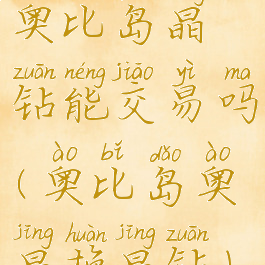 奥比岛晶
zuān néng jiāo yì ma
钻能交易吗
ào bǐ dǎo ào
(奥比岛奥
jīng huàn jīng zuān
晶换晶钻)